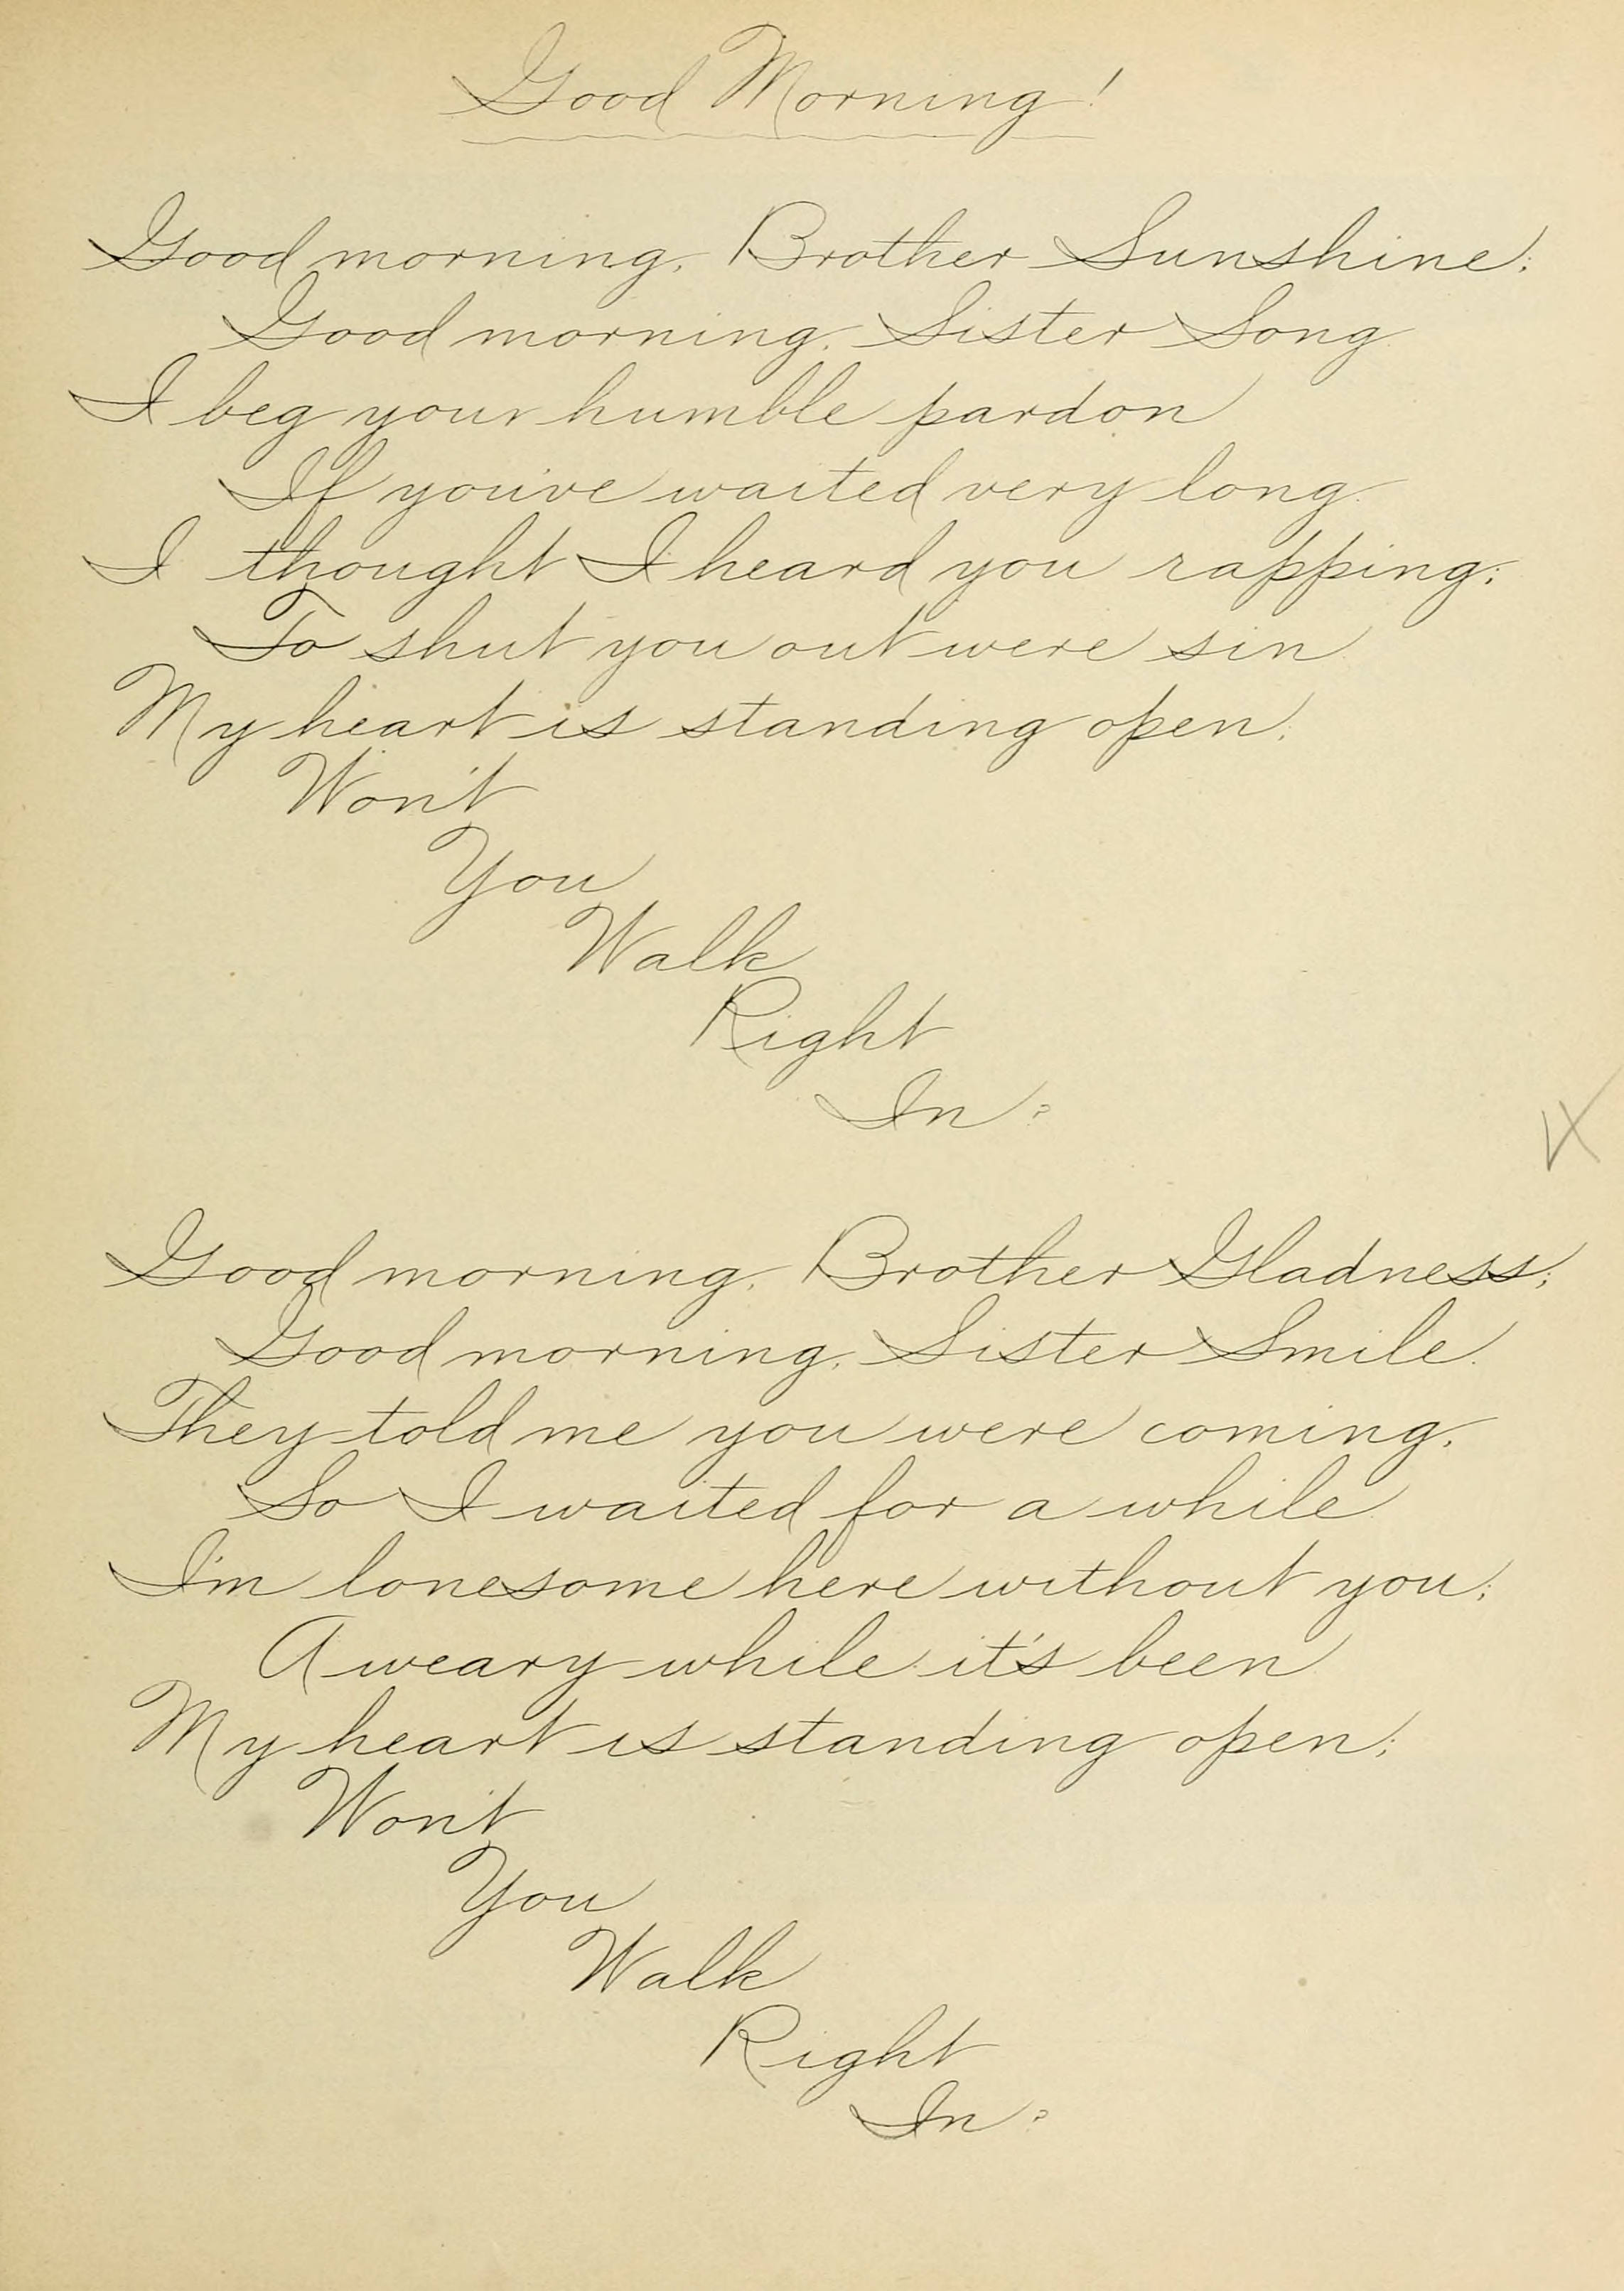 Good Morning!
Good morning, Brother Sunshine;
Good morning, Sister Song.
I beg your humble pardon
If you've waited very long.
I thought I heard you rapping;
To shut you out were sin.
My heart is standing open;
Won't
You
Walk
Right
In?
Good morning, Brother Gladness;
Good morning, Sister Smile.
They told me you were coming,
So I waited for a while.
I'm lonesome here without you;
A weary while it's been.
My heart is standing open;
Won't
You
Walk
Right
In?